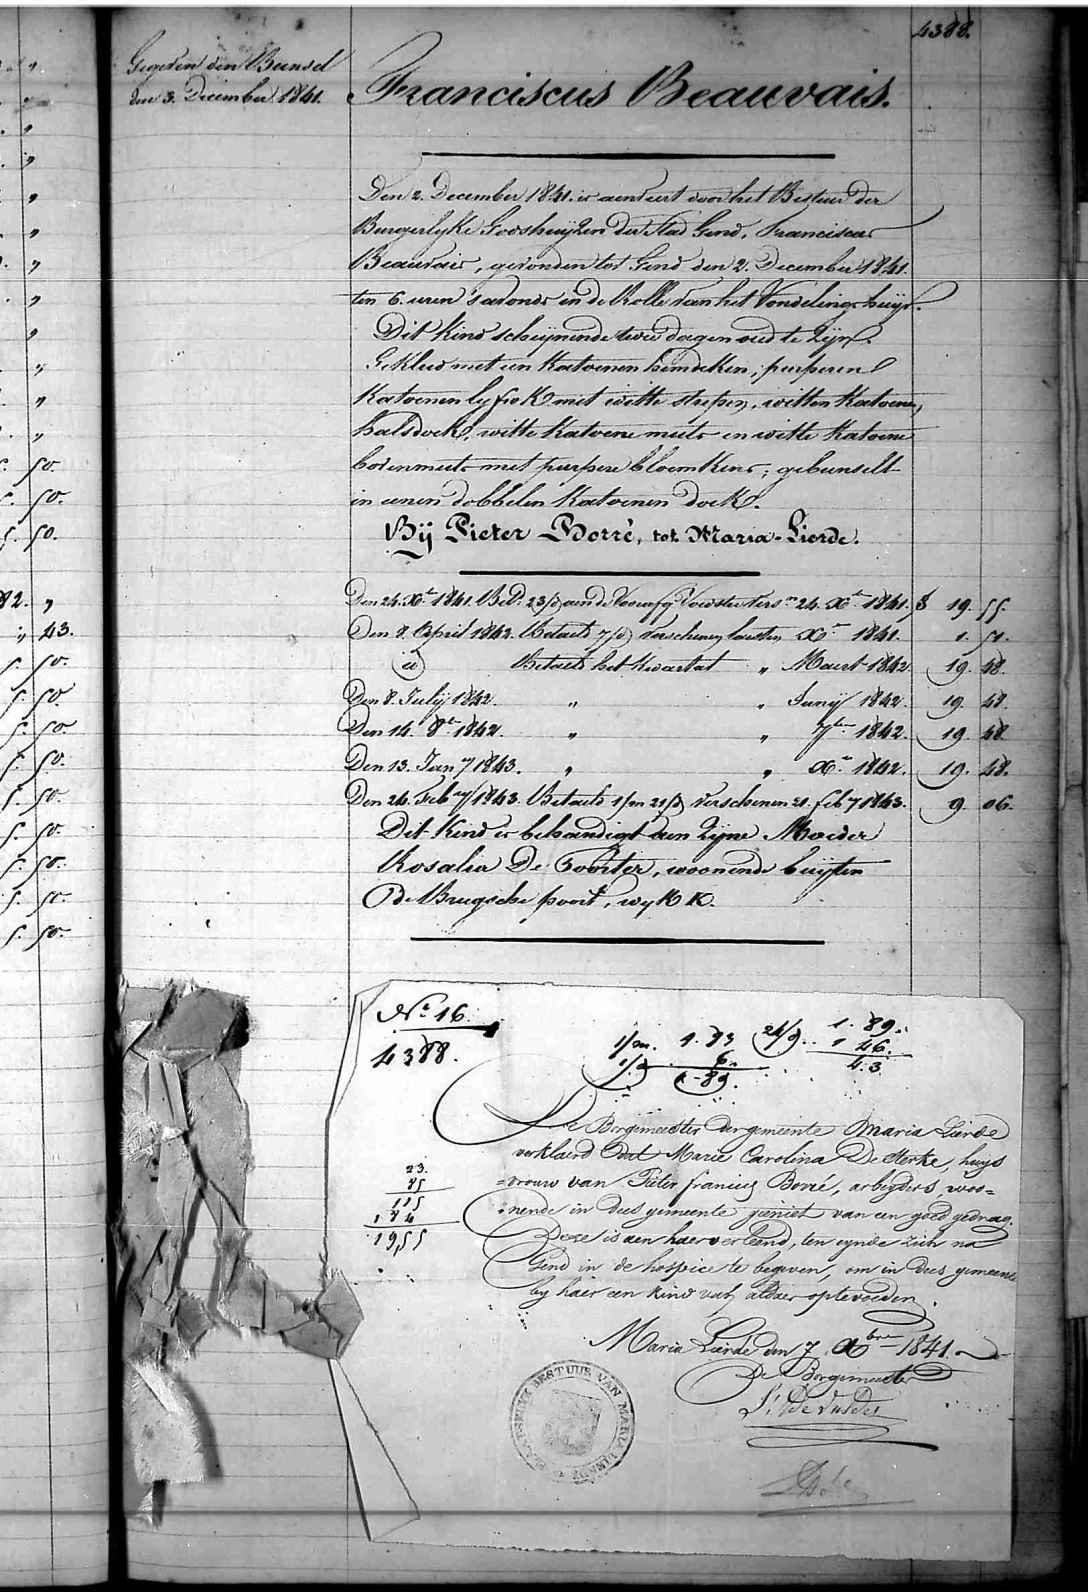 4388.
Gegeven den Bunsel
den 3. December 1841.
Franciscus Beauvais.
Den 2. December 1841. is aenveert door het Bestuer der
Burgerlyke Godshuyzen der Stad Gend, Franciscus
Beauvais, gevonden tot Gend den 2. December 1841.
ten 6. uren 's avonds in de Rolle van het Vondelingshuys.
Dit kind schynende twee dagen oud te zyn.
Gekleed met een katoenen hemdeken, purperen
katoenen lyfrok met witte strepen, witten katoenen
halsdoek, witte katoene muts en witte katoene
bovenmuts met purpere bloemkens; gebunselt
in eenen dobbelen katoenen doek.
Bij Pieter Borré, tot Maria-Lierde.
Den 24. Xr 1841. Bet. 23/d aen de Voedster 24. Xr 1841. f 19. 55.
Den 8. April 1842. Betaelt 7/d verschenen laesten Xr 1841. 1. 51.
id Betaelt het kwartael " Maert 1842. 19. 48.
Den 8. July 1842. " " Junij 1842. 19. 48.
Den 14. 8r 1842. " " 7r 1842. 19. 48.
Den 13. Jany 1843. " " Xr 1842. 19. 48.
Den 24. Feby 1843. Betaelt 1/m 21/d verschenen 21. feby 1843. 9. 06.
Dit kind is behandigt aen zyne Moeder
Rosalia De Coorter, woonende buijten
de Brugsche poort, wyk K.
No 16.
4388.
1/m. 1.83 21/d.. 1.89.
1/d 6. 46.
1-89. 4.3
23.
85
115
184
19,55
De Borgemeester der gemeente Maria Lierde
verklaerd dat Marie Carolina De Sterke, huys
=vrouw van Pieter francies Borré, arbeyders, woo=
=nende in dees gemeente geniet van een goed gedrag.
Deze is aen haer verleend, ten eynde zich na
Gend in de hospice te begeven, om in dees gemeente
by haer een kind van aldaer optevoeden.
Maria Lierde den 7 Xbre 1841.
De Borgemeester
BESTUUR VAN MARIA LIERDE
82. "
" 43.
5. 50.
5. 50.
5. 50
5. 50.
5. 50.
5. 50.
5. 50.
5. 50.
5. 50.